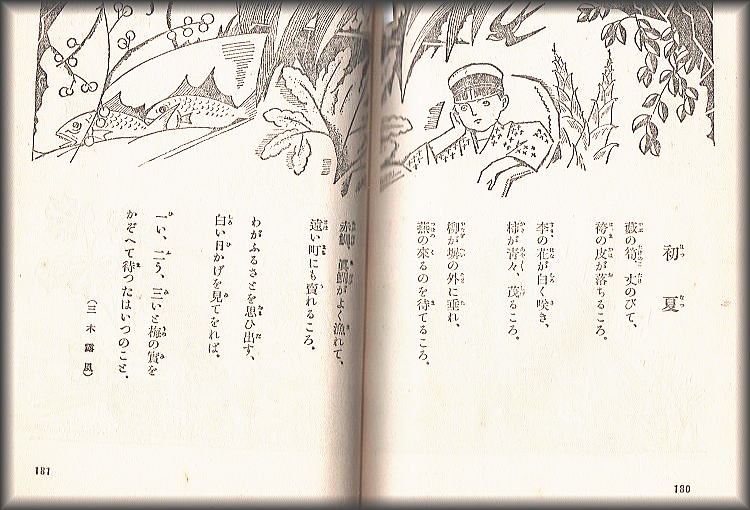 初夏
藪の筍、丈のびて、
袴の皮が落ちるころ。
李の花が白く咲き、
柿が靑々、茂るころ。
柳が塀の外に垂れ、
燕の來るのを待てるころ。
180
赤鯛、眞鯛がよく漁れて、
遠い町にも賣れるころ。
わがふるさとを思ひ出す、
白い日かげを見てをれば。
一い、二う、三いと梅の實を
かぞへて待つたはいつのこと。
(三木露風)
181